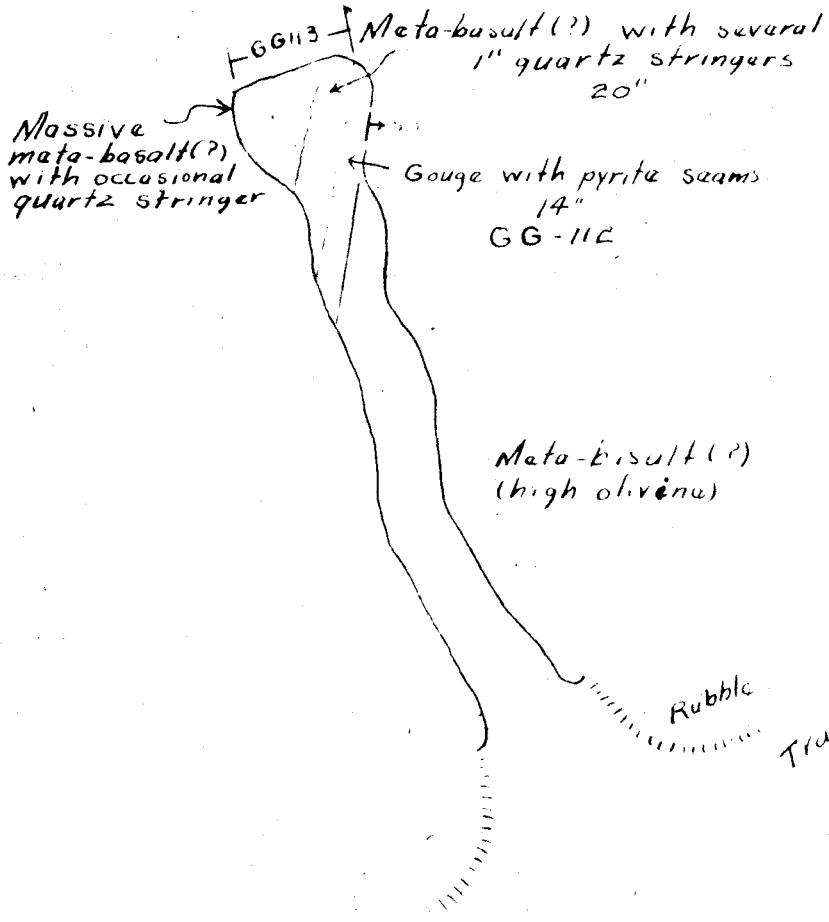 GG113
Meta-basalt(?) with several
1" quartz stringers
20"
Massive
meta-basalt(?)
with occasional
quartz stringer
Gouge with pyrite seams
14"
GG-11C
Meta-basalt(?)
(high olivine)
Rubble